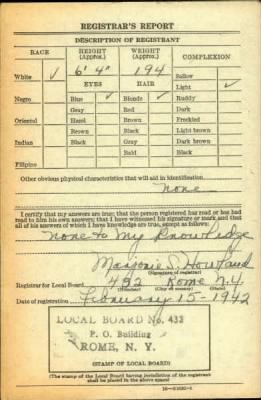 REGISTRAR'S REPORT
DESCRIPTION OF REGISTRANT
RACE HEIGHT (Approx.) WEIGHT (Approx.) COMPLEXION
6' 4" 194 Sallow
White ✓ EYES HAIR Light ✓
Negro Blue ✓ Blonde ✓ Ruddy
Gray Red Dark
Oriental Hazel Brown Freckled
Brown Black Light brown
Indian Black Gray Dark brown
Bald Black
Filipino
Other obvious physical characteristics that will aid in identification
None
I certify that my answers are true; that the person registered has read or has had
read to him his own answers; that I have witnessed his signature or mark and that
all of his answers of which I have knowledge are true, except as follows:
None to My Knowledge
Marjorie S. Howland
(Signature of registrar)
Registrar for Local Board 432 Rome N.Y.
(Number) (City or county) (State)
Date of registration February 15-1942
LOCAL BOARD No. 432
P. O. Building
ROME, N. Y.
(STAMP OF LOCAL BOARD)
(The stamp of the Local Board having jurisdiction of the registrant
shall be placed in the above space)